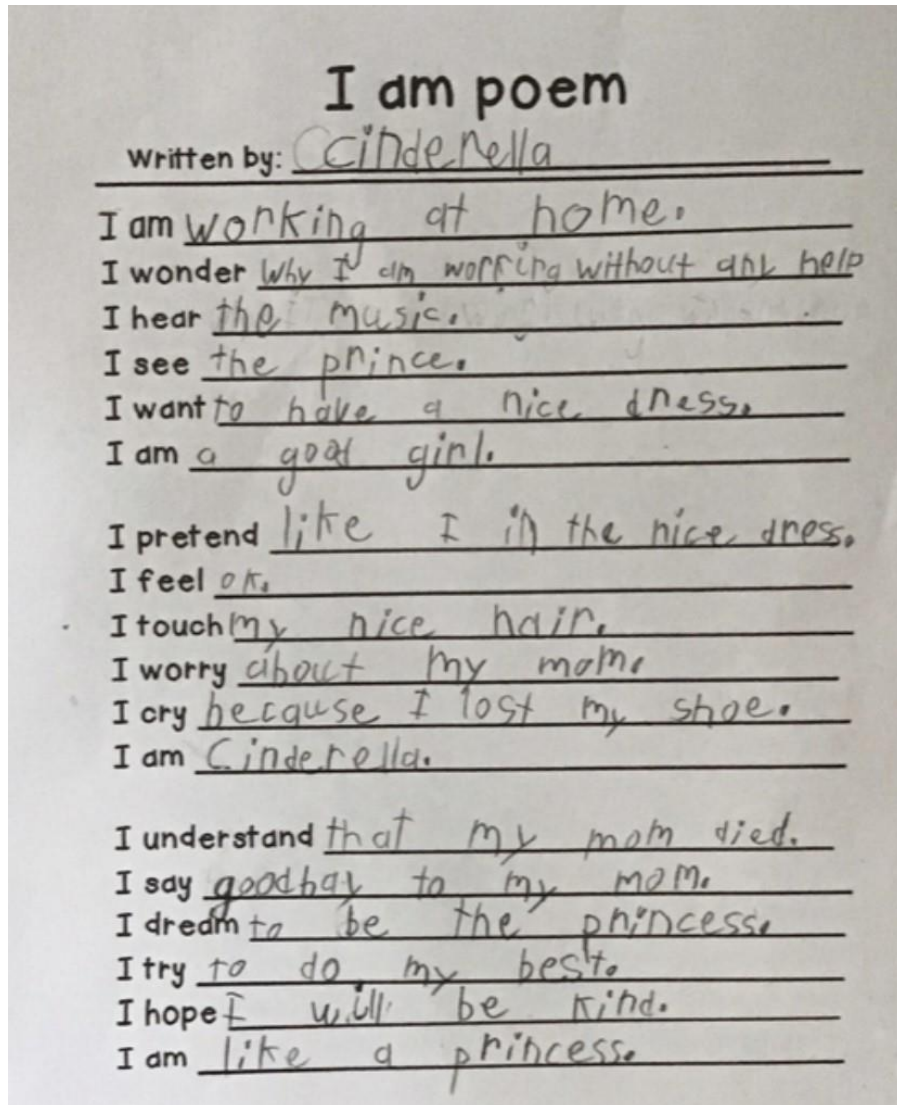 I am poem
Written by: Cinderella
I am working at home.
I wonder Why I am worring without any help
I hear the music.
I see the prince.
I want to have a nice dress.
I am a good girl.
I pretend like I in the nice dress.
I feel ok.
I touch my nice hair.
I worry about my mom.
I cry because I lost my shoe.
I am Cinderella.
I understand that my mom died.
I say goodbay to my mom.
I dream to be the princess.
I try to do my best.
I hope I will be kind.
I am like a princess.